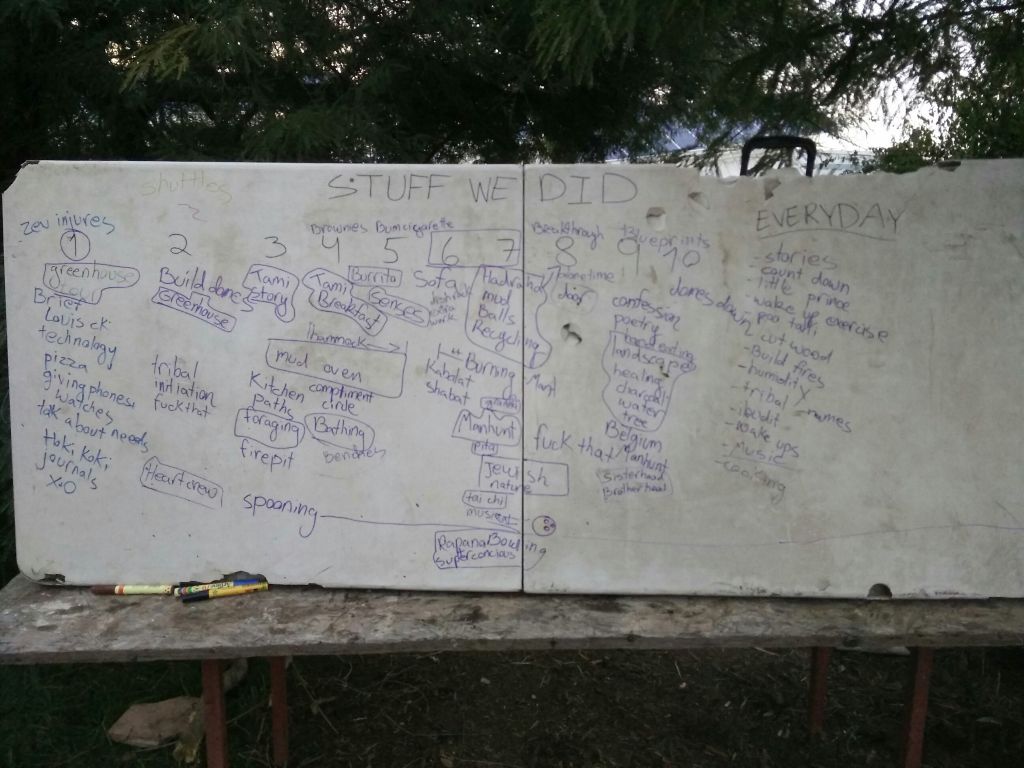 shuttles
STUFF WE DID
EVERYDAY
zev injures
Brownies Bumcigarette
Breakthrough
Blueprints
1 2 3 4 5 6 7 8 9 10
greenhouse
Brief
Louis ck
technology
pizza
giving phones
watches
talk about needs
tbk, koki
journals
X.O
Build dome
Greenhouse
tribal
initiation
fuck that
Heart crew
Tami
story
Kitchen
Paths
foraging
firepit
spooning
Tami
Breakfast
hammock
mud oven
compliment
circle
Bathing
benches
Burrito
Senses
Sofa
Burning
Kabalat
shabat
Manhunt
pita
Jewish
nature
tai chi
Rapana Bowling
superconcious
Hadracha
mud
Balls
Recycling
planetime
fuck that
confession
poetry
landscape
healing
charcoal
water
tree
Belgium
Manhunt
Sisterhood
Brotherhood
domes down
-stories
-count down
-little prince
-wake up exercise
-poo talk
-cut wood
-Build fires
-humidity X
-tribal names
-ibudit
-wake ups
-Music
-cooking